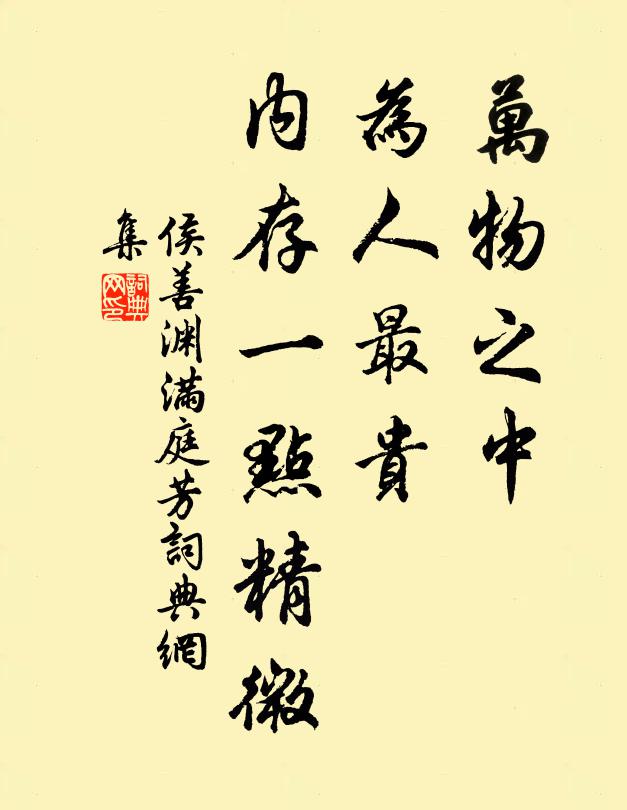 萬物之中
為人最貴
內存一點精微
侯善渊滿庭芳詞典網
集
詞典
网印